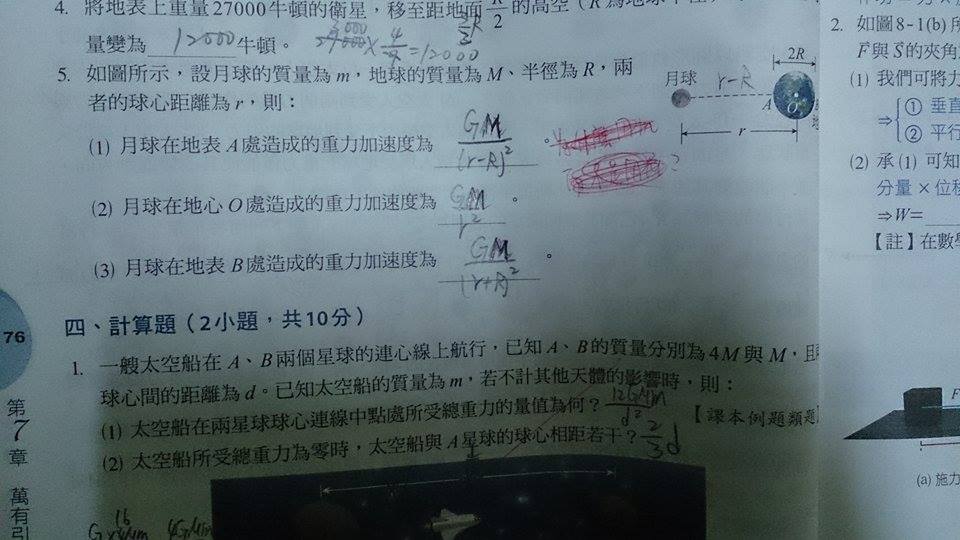 4. 將地表上重量27000牛頓的衛星，移至距地面R/2的高空（R為地球半徑
量變為 12000 牛頓。 × 4/9 = 12000
5. 如圖所示，設月球的質量為 m，地球的質量為 M、半徑為 R，兩
者的球心距離為 r，則：
(1) 月球在地表 A 處造成的重力加速度為 GM/(r-R)² 。
(2) 月球在地心 O 處造成的重力加速度為 GM/r² 。
(3) 月球在地表 B 處造成的重力加速度為 GM/(r+R)² 。
月球 r-R 2R
A O
r
四、計算題（2小題，共10分）
1. 一艘太空船在 A、B 兩個星球的連心線上航行，已知 A、B 的質量分別為 4M 與 M，且
球心間的距離為 d。已知太空船的質量為 m，若不計其他天體的影響時，則：
(1) 太空船在兩星球球心連線中點處所受總重力的量值為何？ 12GMm/d² 【課本例題類題
(2) 太空船所受總重力為零時，太空船與 A 星球的球心相距若干？ 2/3 d
76
第7章 萬有引
2. 如圖8-1(b)所
F與S的夾角
(1) 我們可將力
⇒ ① 垂直
② 平行
(2) 承(1) 可知
分量×位移
⇒W=
【註】在數學
F
(a) 施力